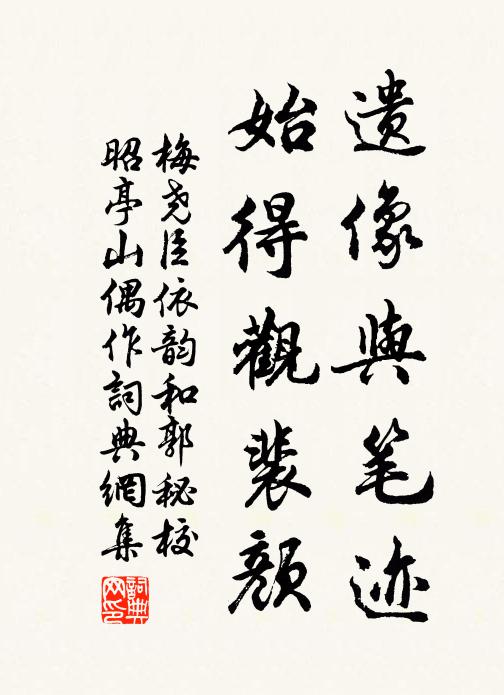 遗像與笔迹
始得觀裴颜
梅尧臣依韵和郭秘校
昭亭山偶作詞典網集
詞典网印